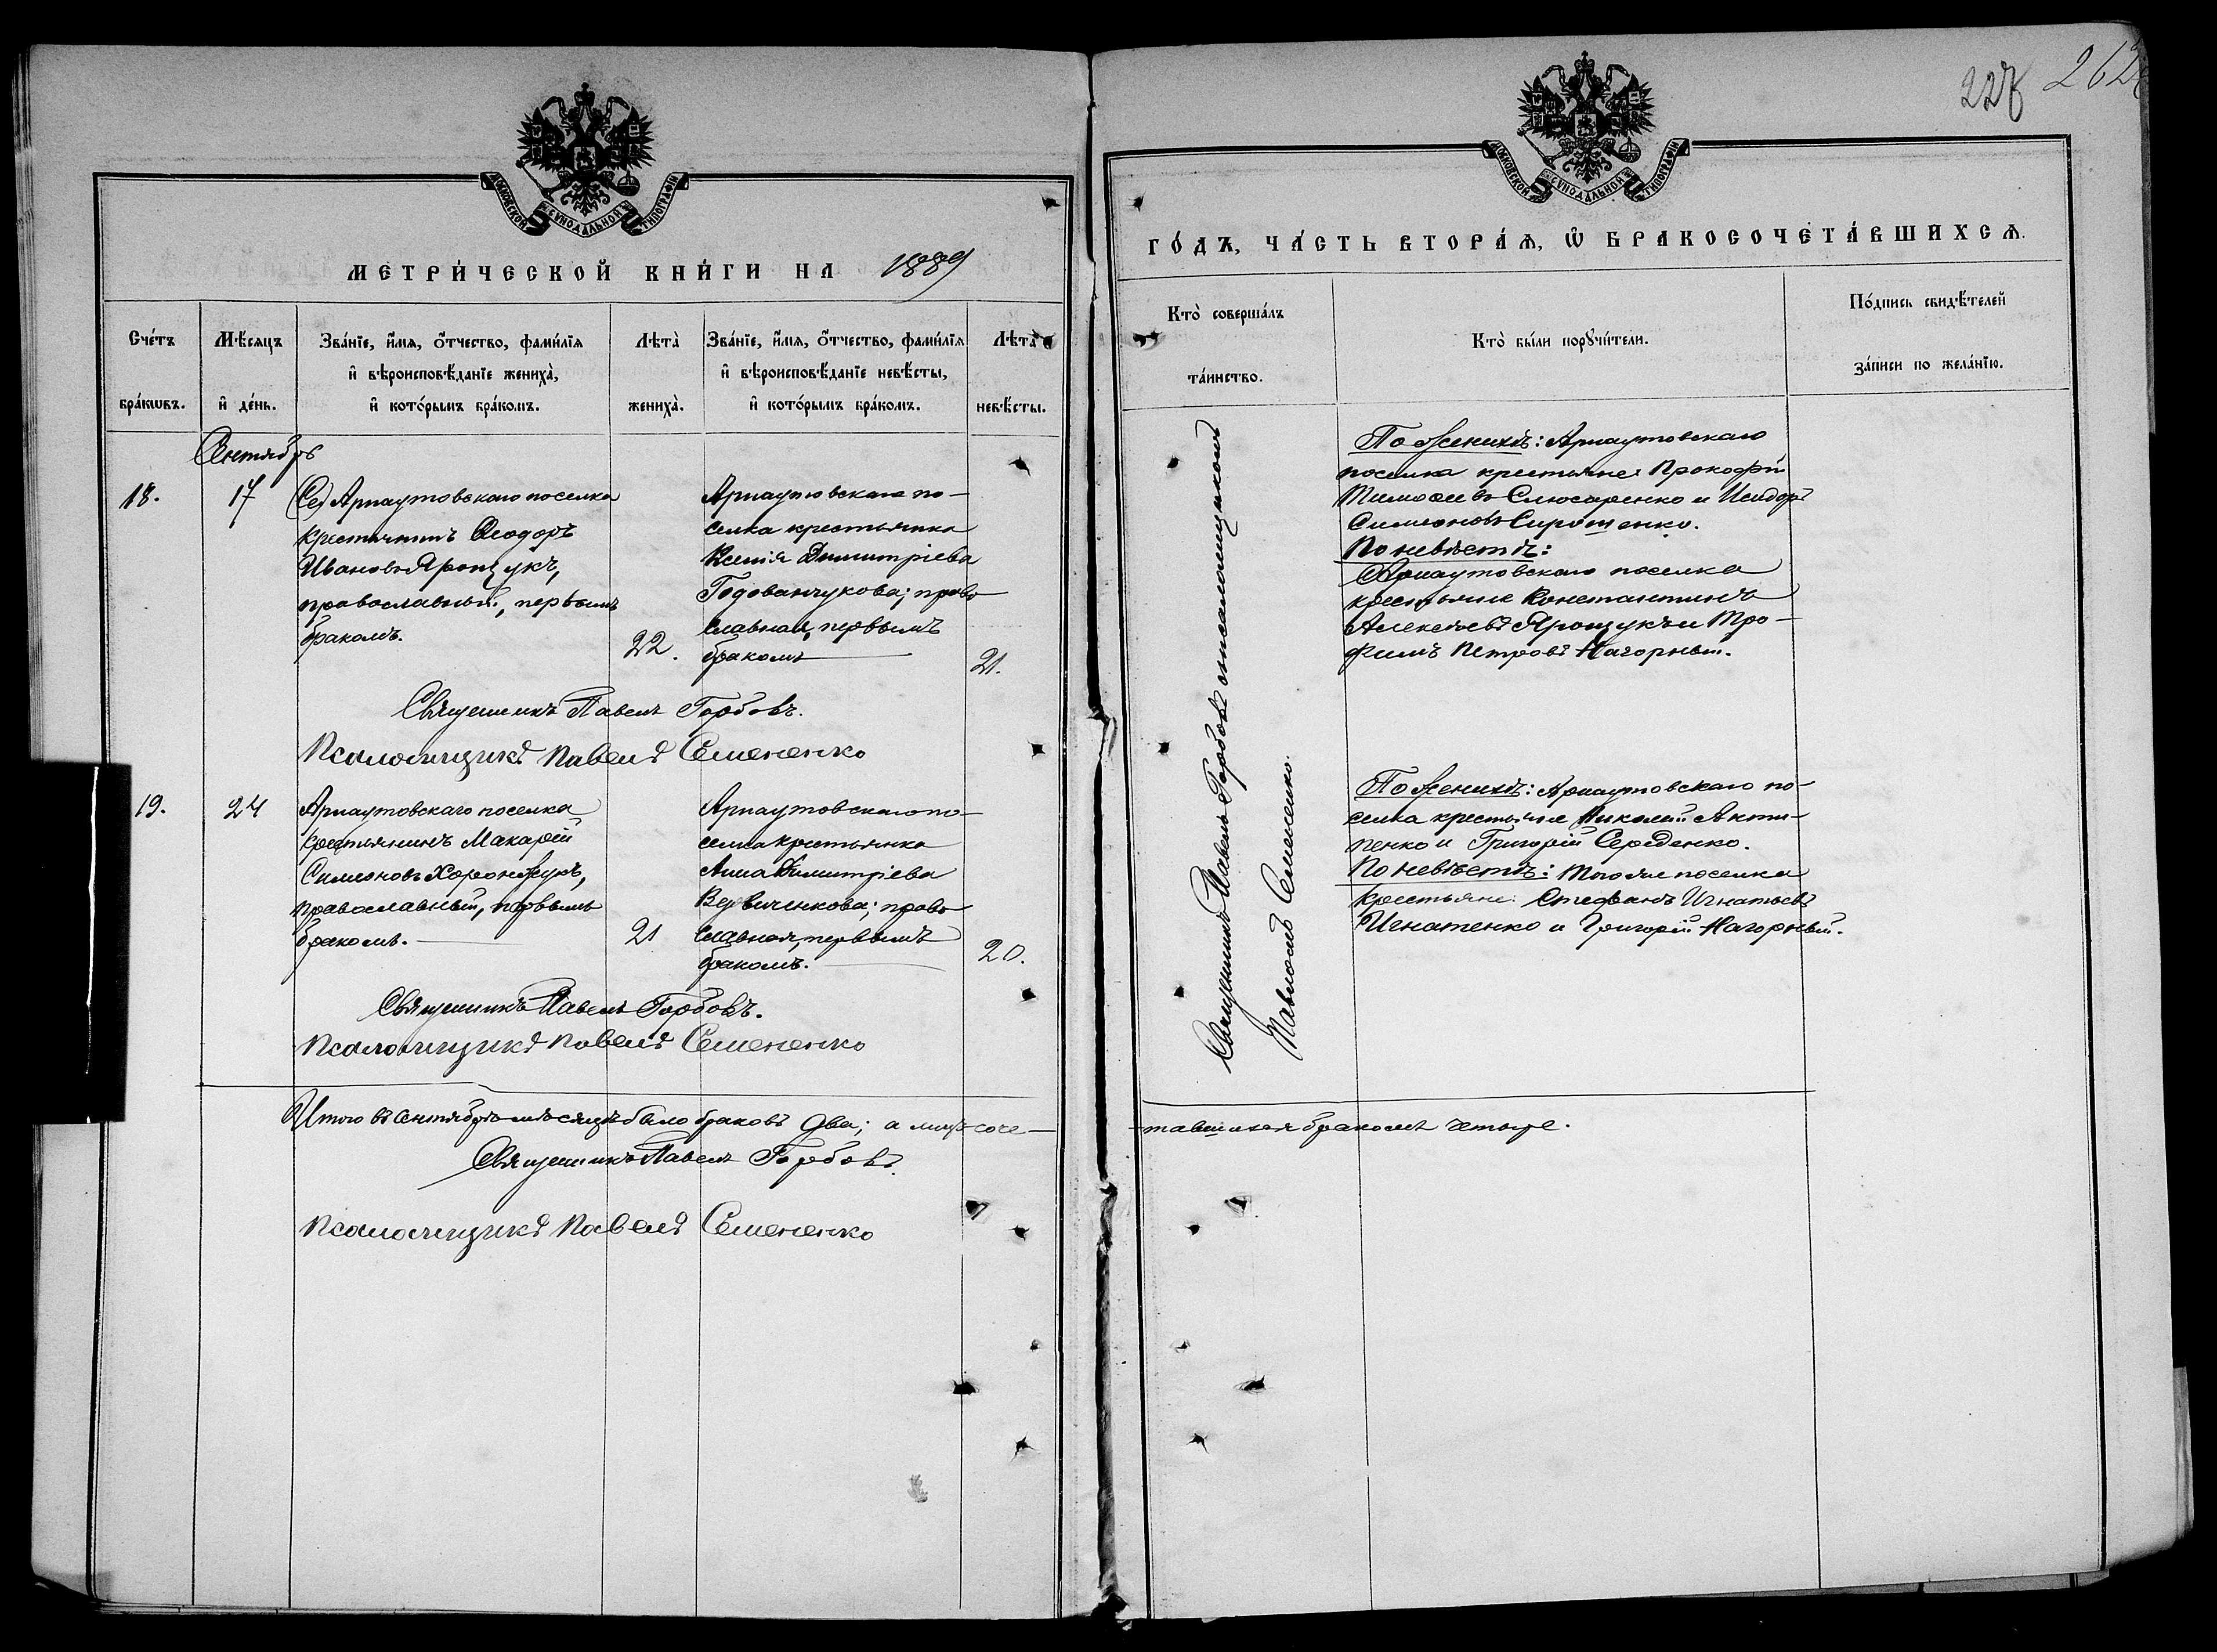 МОСКОВСКОЙ СѴНОДАЛЬНОЙ ТИПОГРАФІИ
МЕТРИ́ЧЕСКОЙ КНИ́ГИ НА 1889
Сче́тъ бра́кѡвъ.
Мѣ́сяцъ и҆ де́нь.
Зва́нїе, и҆́мѧ, ѻ҆́тчество, фами́лїѧ
и҆ вѣроисповѣ́данїе жениха̀,
и҆ кото́рымъ бра́комъ.
Лѣта̀ жениха̀.
Зва́нїе, и҆́мѧ, ѻ҆́тчество, фами́лїѧ
и҆ вѣроисповѣ́данїе невѣ́сты,
и҆ кото́рымъ бра́комъ.
Лѣта̀ невѣ́сты.
Сентябрь
18.
17
Арнаутовскаго поселка
крестянинъ Ѳеодоръ
Ивановъ Ярощукъ,
православный, первымъ
бракомъ.
22.
Арнаутовскаго по-
селка крестьянка
Ксенія Димитріева
Годованчукова; право
славная, первымъ
бракомъ
21.
Священникъ Павелъ Горбовъ.
Псаломщикъ Павелъ Семененко
19.
24
Арнаутовскаго поселка
крестьянинъ Макарій
Симеоновъ Харонжукъ,
православный, первымъ
бракомъ.
21
Арнаутовскаго по-
селка крестьянка
Анна Димитріева
Вервиченкова; право
славная, первымъ
бракомъ.
20.
Священникъ Павелъ Горбовъ.
Псаломщикъ Павелъ Семененко
Итого въ Сентябрѣ мѣсяцѣ было браковъ два; а лицъ соче-
Священникъ Павелъ Горбовъ.
Псаломщикъ Павелъ Семененко
227
262
МОСКОВСКОЙ СѴНОДАЛЬНОЙ ТИПОГРАФІИ
ГО́ДЪ, ЧА́СТЬ ВТОРА́Ѧ, Ѡ҆ БРАКОСОЧЕТА́ВШИХСѦ.
Кто̀ соверша́лъ
та́инство.
Кто̀ бы́ли порꙋчи́тели.
По́дпись свидѣ́телей
за́писи по жела́нїю.
Священникъ Павелъ Горбовъ съ псаломщикомъ
Павломъ Семененко.
По женихѣ: Арнаутовскаго
поселка крестьяне: Прокофій
Тимоѳеевъ Слюсаренко и Исидоръ
Симеоновъ Сирошенко.
По невѣстѣ:
Арнаутовскаго поселка
крестьяне Константинъ
Алексѣевъ Ярощукъ и Тро-
фимъ Петровъ Нагорный.
По женихѣ: Арнаутовскаго по-
селка крестьяне Николай Анти-
пенко и Григорій Середенко.
По невѣстѣ: того же поселка
крестьяне: Стефанъ Игнатьевъ
Игнатенко и Григорій Нагорный.
тавшихся бракомъ четыре.